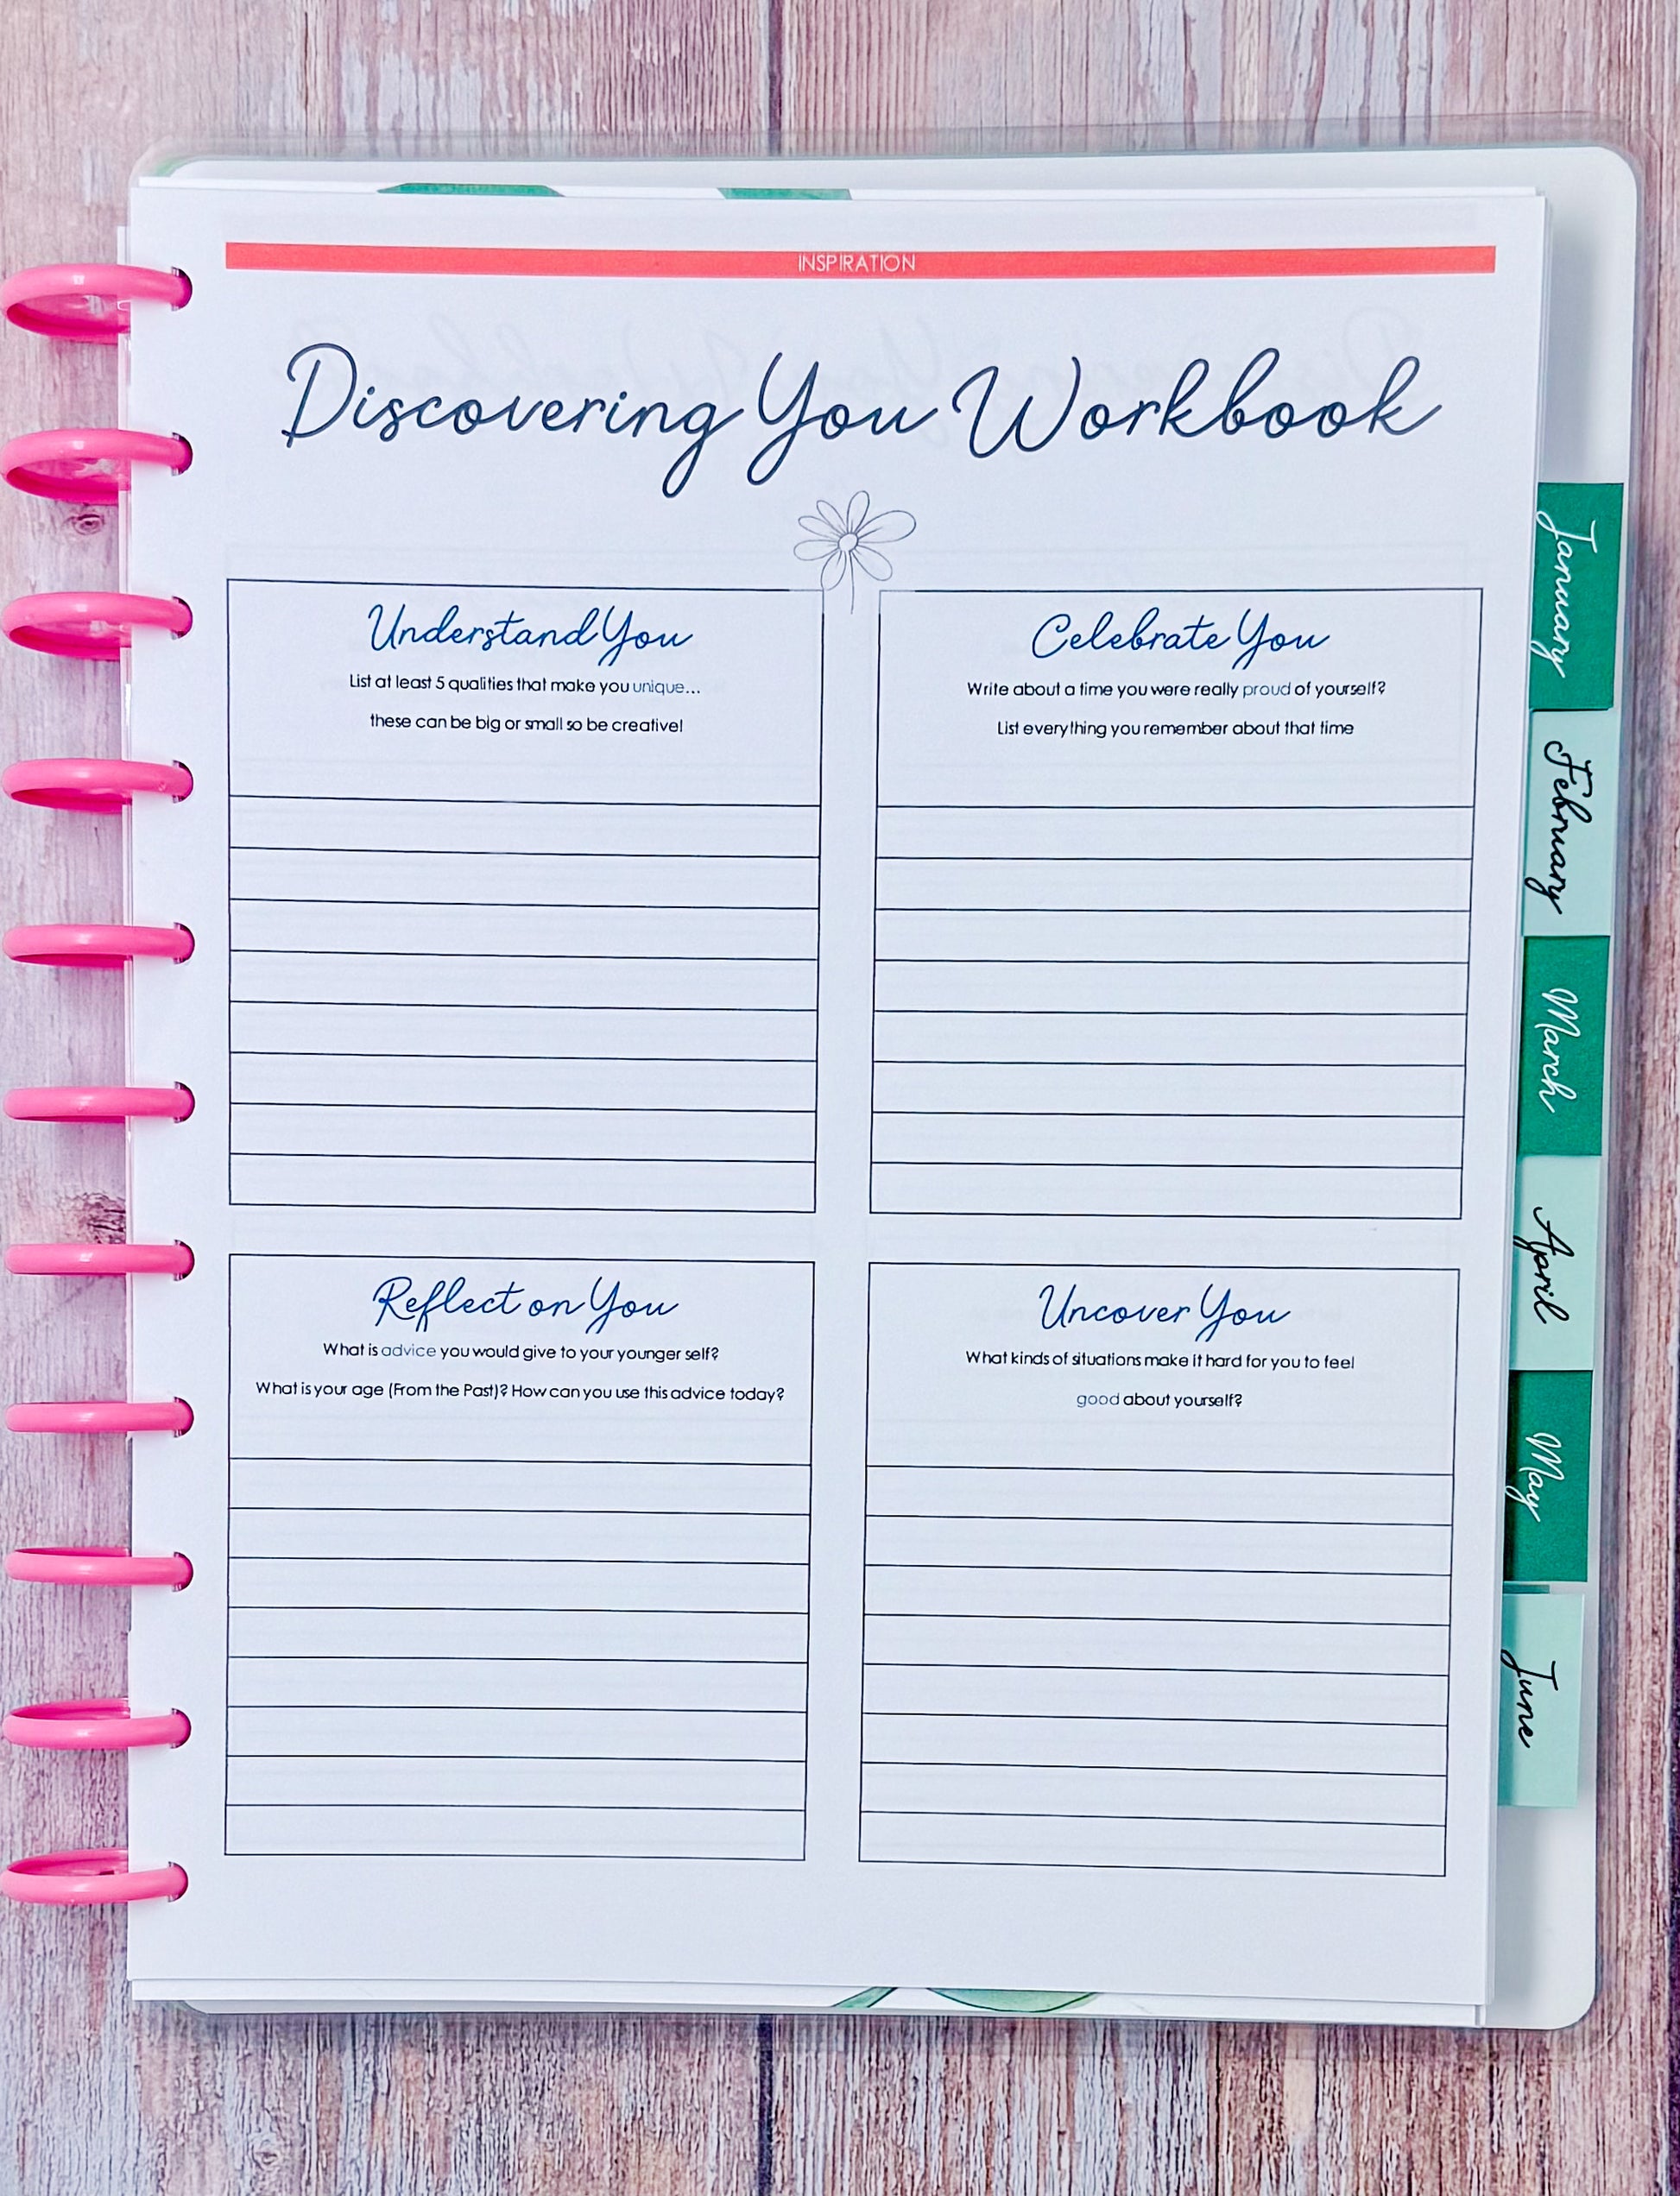 INSPIRATION
Discovering You Workbook
Understand You
List at least 5 qualities that make you unique...
these can be big or small so be creative!
Celebrate You
Write about a time you were really proud of yourself?
List everything you remember about that time
Reflect on You
What is advice you would give to your younger self?
What is your age (From the Past)? How can you use this advice today?
Uncover You
What kinds of situations make it hard for you to feel
good about yourself?
January
February
March
April
May
June